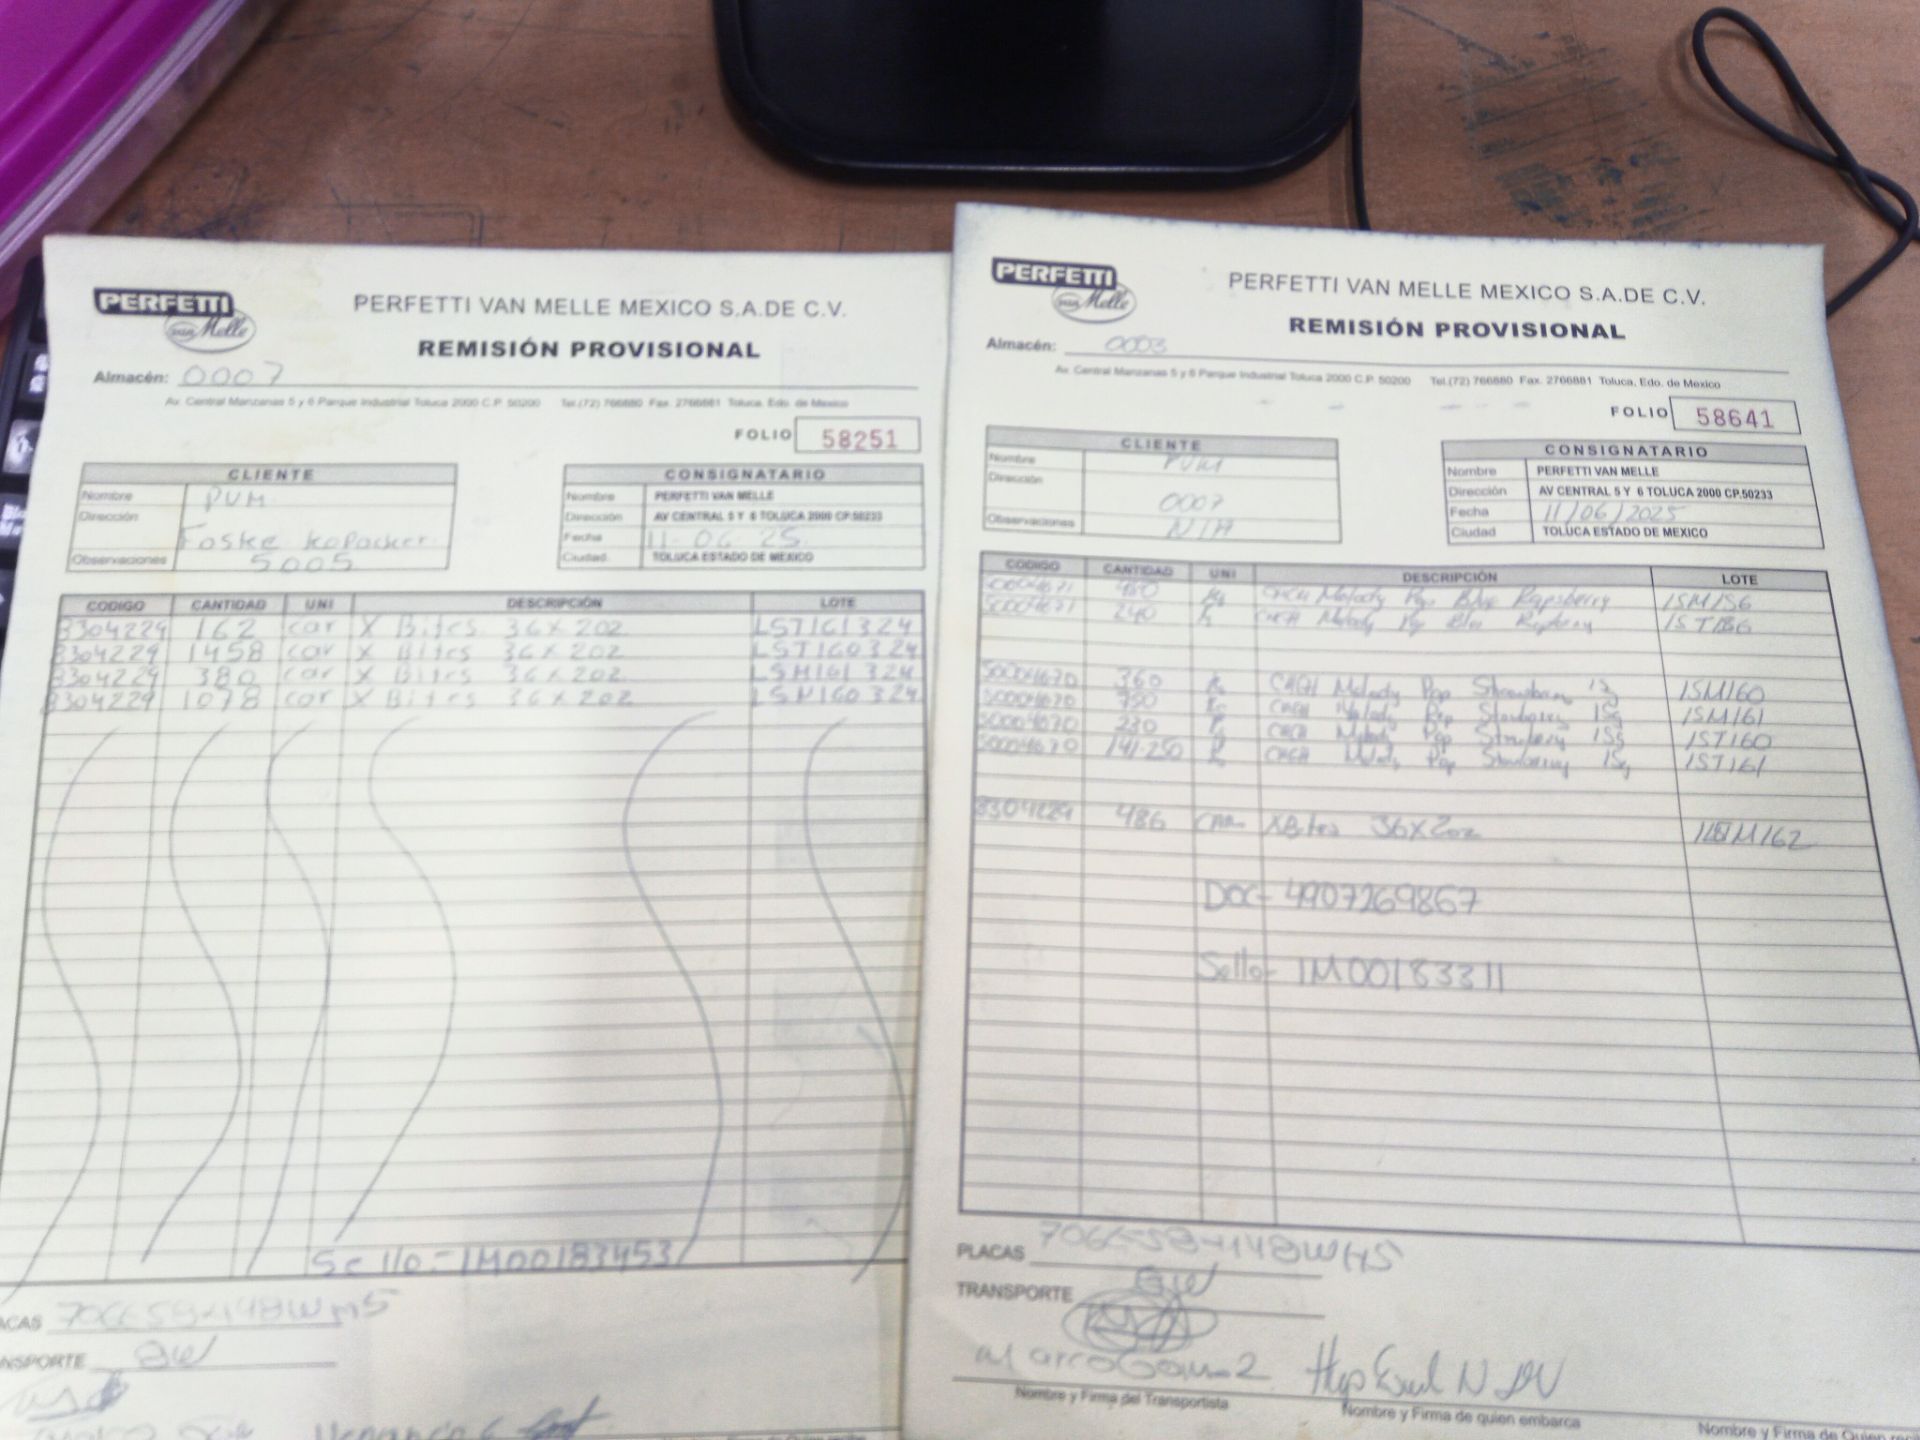 PERFETTI
van Melle
PERFETTI VAN MELLE MEXICO S.A.DE C.V.
REMISIÓN PROVISIONAL
Almacén: 0007
Av. Central Manzanas 5 y 6 Parque Industrial Toluca 2000 C.P. 50200 Tel.(72) 766880 Fax. 2766881 Toluca, Edo. de Mexico
FOLIO 58251
CLIENTE
Nombre PVM
Dirección
Foske
Observaciones 5005
CONSIGNATARIO
Nombre PERFETTI VAN MELLE
Dirección AV CENTRAL 5 Y 6 TOLUCA 2000 CP.50233
Fecha 11-06-25
Ciudad. TOLUCA ESTADO DE MEXICO
CODIGO CANTIDAD UNI DESCRIPCIÓN LOTE
8304229 162 car X Bites 36x202 LST161324
8304229 1458 car X Bites 36x202 LST160324
8304229 380 car X Bites 36x202 LSM161324
8304229 1078 car X Bites 36x202 LSM160324
Sello:-1M00183453
ACAS
NSPORTE
PERFETTI
van Melle
PERFETTI VAN MELLE MEXICO S.A.DE C.V.
REMISIÓN PROVISIONAL
Almacén: 0003
Av. Central Manzanas 5 y 6 Parque Industrial Toluca 2000 C.P. 50200 Tel.(72) 766880 Fax. 2766881 Toluca, Edo. de Mexico
FOLIO 58641
CLIENTE
Nombre PVM
Dirección
0007
Observaciones N/A
CONSIGNATARIO
Nombre PERFETTI VAN MELLE
Dirección AV CENTRAL 5 Y 6 TOLUCA 2000 CP.50233
Fecha 11/06/2025
Ciudad TOLUCA ESTADO DE MEXICO
CODIGO CANTIDAD UNI DESCRIPCIÓN LOTE
50004671 Melody Pop Blue Rapsberry ISM156
50004671 240 Melody Pop Blue
50004670 360 Melody Pop ISM160
50004670 Melody Pop 15g ISM161
50004670 230 Melody Pop 15g IST160
50004670 141.250 Melody Pop 15g IST161
8304229 486 CAR XBites 36x2oz
Doc- 4907269867
Sello- 1M00183311
PLACAS
TRANSPORTE
Nombre y Firma del Transportista
Nombre y Firma de quien embarca
Nombre y Firma de Quien